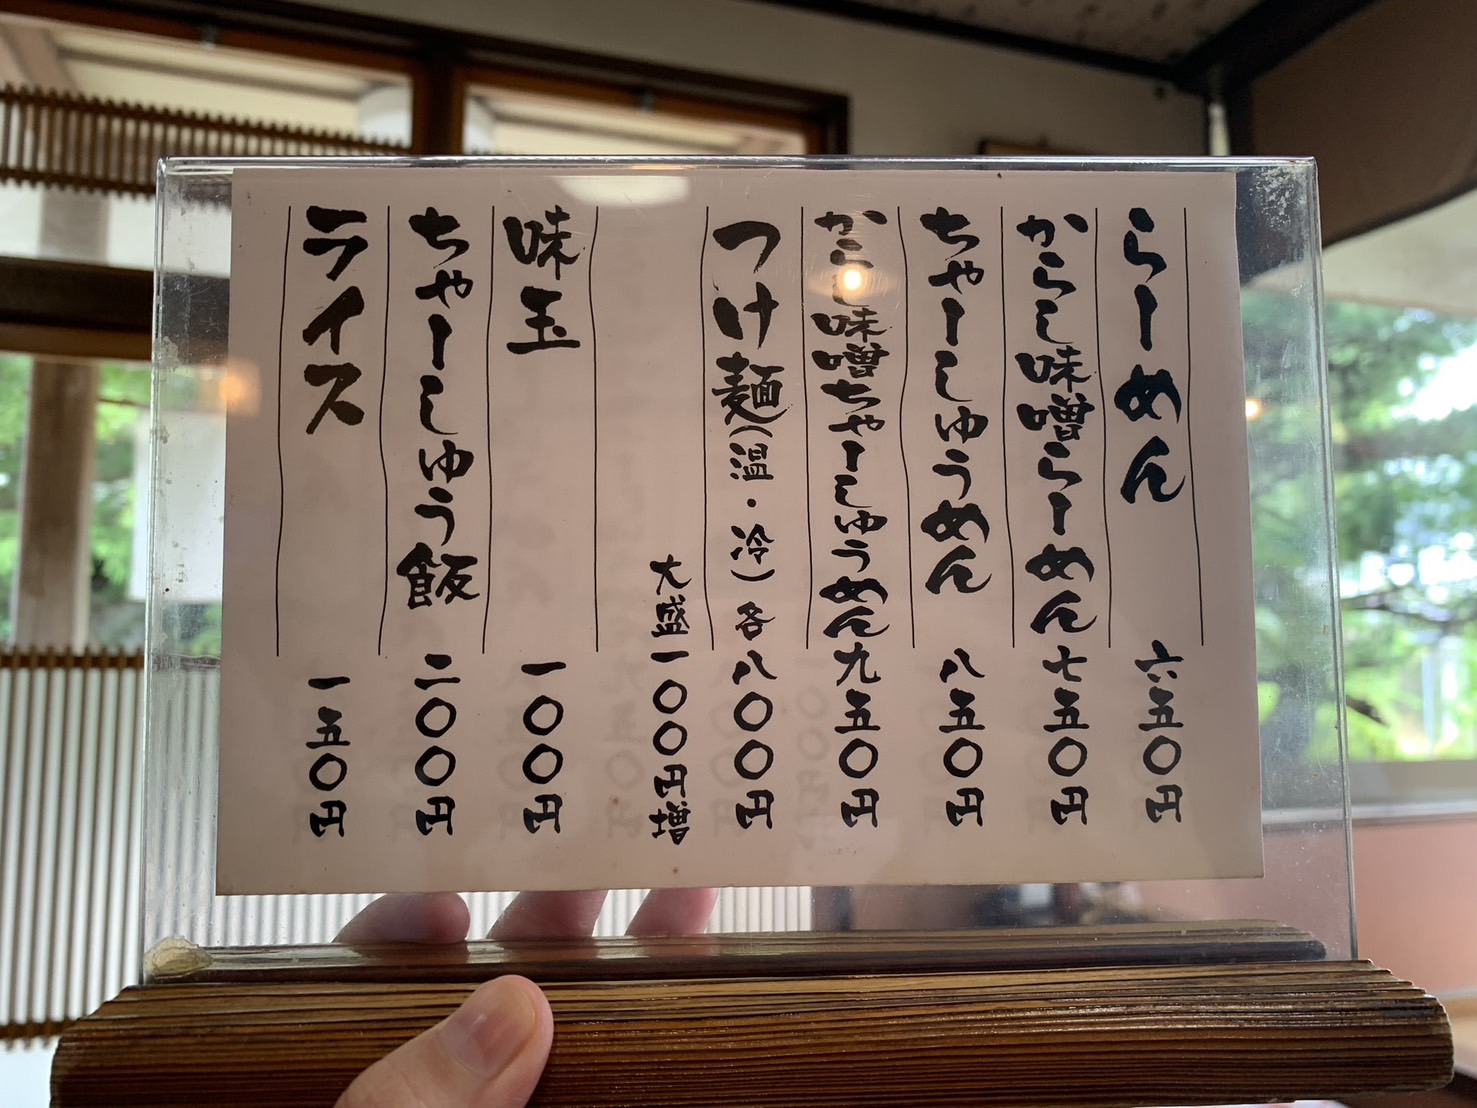 らーめん 六五〇円
からし味噌らーめん 七五〇円
ちゃーしゅうめん 八五〇円
からし味噌ちゃーしゅうめん 九五〇円
つけ麺(温・冷)各 八〇〇円
大盛一〇〇円増
味玉 一〇〇円
ちゃーしゅう飯 二〇〇円
ライス 一五〇円